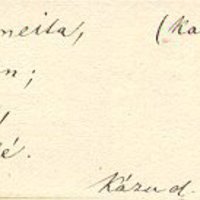 meita, (ka
n;
,
é.
Kázu d.